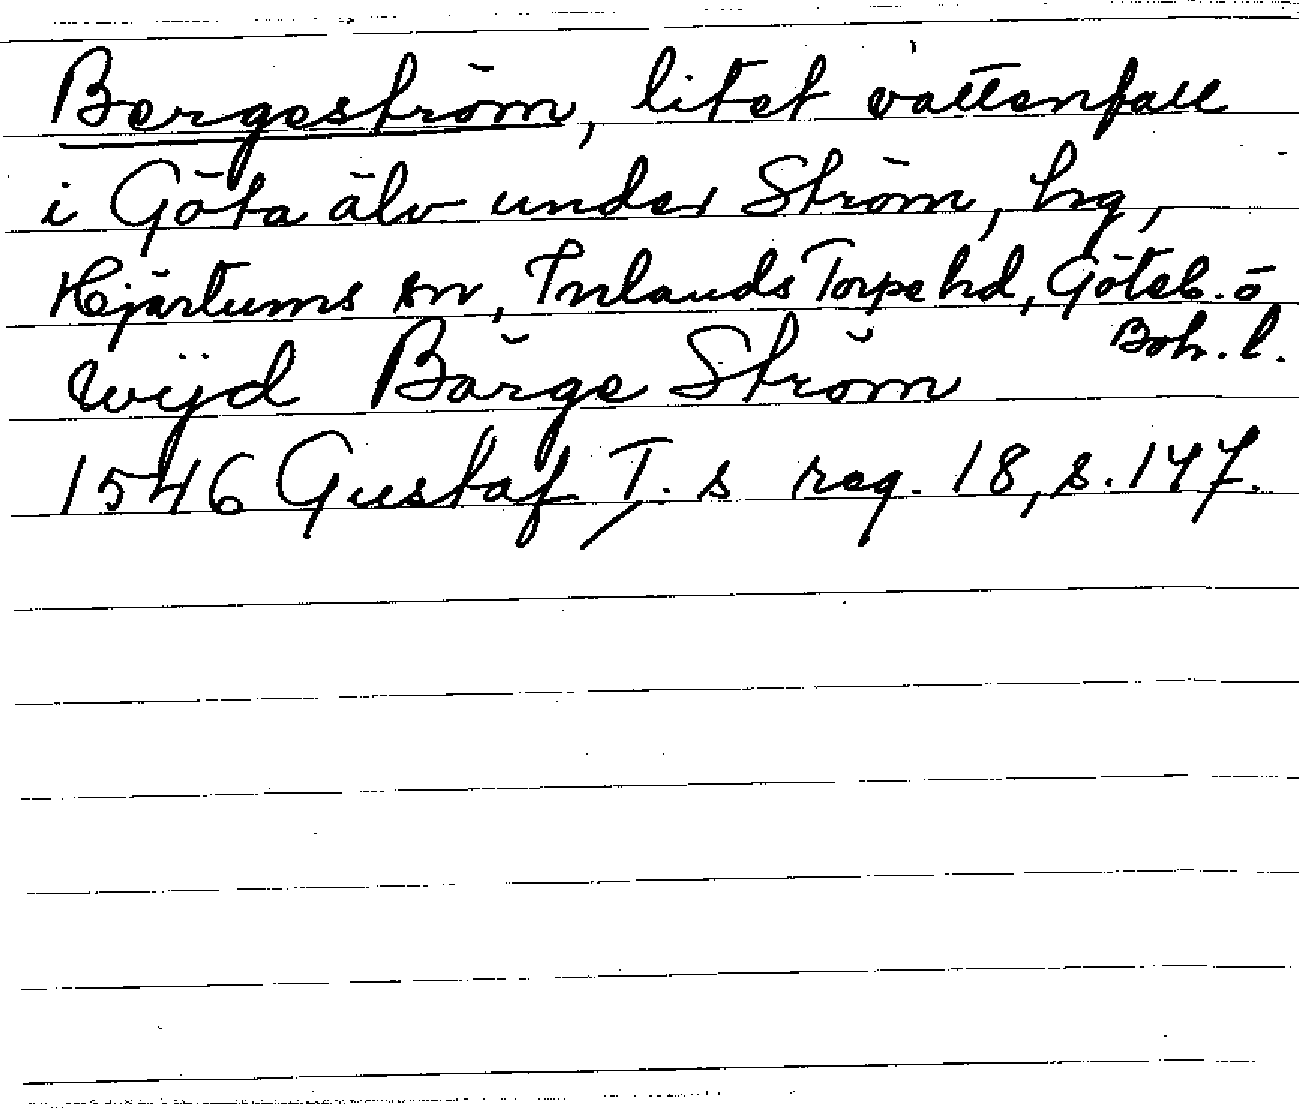 Bergeström, litet vattenfall
i Göta älv under Ström, hg,
Hjärtums sn, Inlands Torpe hd, Göteb. o
Boh. l.
wijd Bårge Ström
1546 Gustaf I. s reg. 18, s. 147.